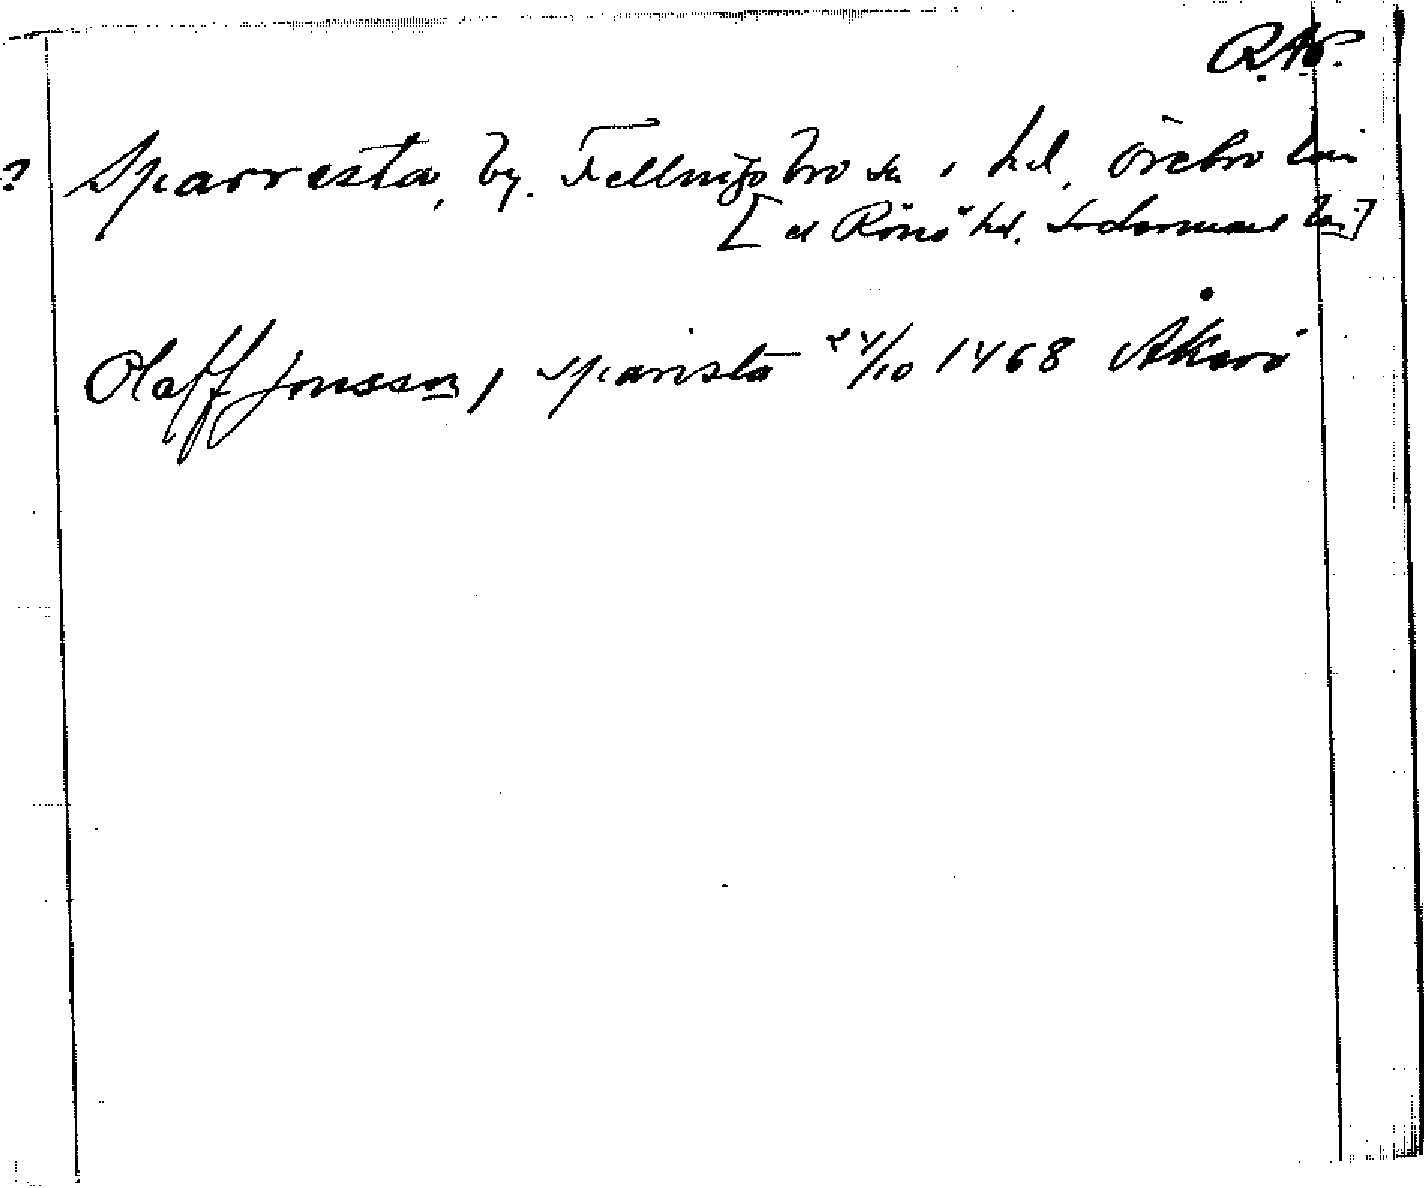 R.Ap.
? Sparresta, by. Fellingsbro sn o hd, Örebro län
[el Rönö hd. Södermanl län]
Olaff Jonsson, i sparista 24/10 1468 Åkerö